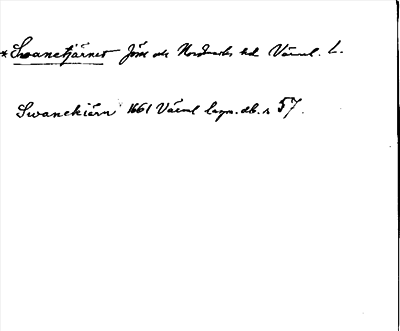 *Swanetjärnet Jöns sk. Nordmarks hd Värml. L.
Swanekiärn 1661 Värml lagm. db. s 57.